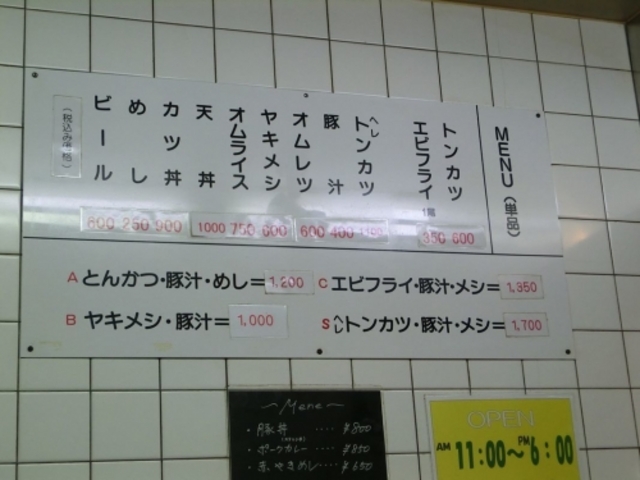 MENU（単品）
トンカツ 800
エビフライ 1尾 350
ヘレトンカツ 1100
豚汁 400
オムレツ 600
ヤキメシ 600
オムライス 750
天丼 1000
カツ丼 900
めし 250
ビール 600
（税込み価格）
A とんかつ・豚汁・めし＝1,200
B ヤキメシ・豚汁＝ 1,000
C エビフライ・豚汁・メシ＝1,350
S ヘレトンカツ・豚汁・メシ＝1,700
～Menu～
・豚丼 ････ ¥800
・ポークカレー ･･･ ¥850
やきめし ･･･ ¥650
OPEN
AM 11:00～PM 6:00